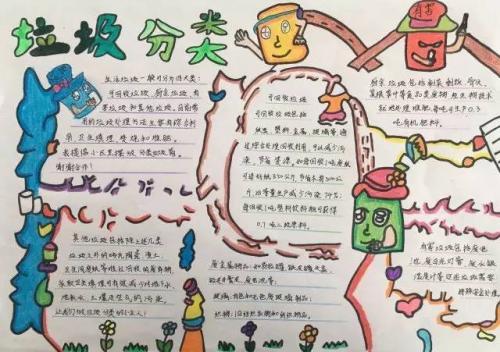 垃圾分类
有害
生活垃圾一般可分为四大类:
可回收垃圾、厨余垃圾、有
害垃圾和其他垃圾。目前常
用的垃圾处理方法主要有综合利
用、卫生填埋、焚烧和堆肥。
谢谢合作!
可回收垃圾
可回收垃圾包括
纸类、塑料、金属、玻璃等,通
过综合处理回收利用,可以减少污
染,节省资源。如每回收1吨废纸
可造好纸850公斤,节省木材300公
斤,比等量生产减少污染74%;
每回收1吨塑料饮料瓶可获得
0.7吨二级原料。
厨余垃圾包括剩菜、剩饭、骨头、
菜根菜叶等食品类废物,经生物技术
就地处理堆肥,每吨可生产0.3
吨有机肥料。
其他垃圾包括除上述几类
垃圾之外的砖瓦陶瓷、渣土、
卫生间废纸等难以回收的废弃物,
采取卫生填埋可有效减少对地下水、
地表水、土壤及空气的污染。
玻璃:有色和无色废玻璃制品;
有害垃圾包括废电
池、废日光灯管、废水银
温度计等,这些垃圾需要
特殊安全处理。